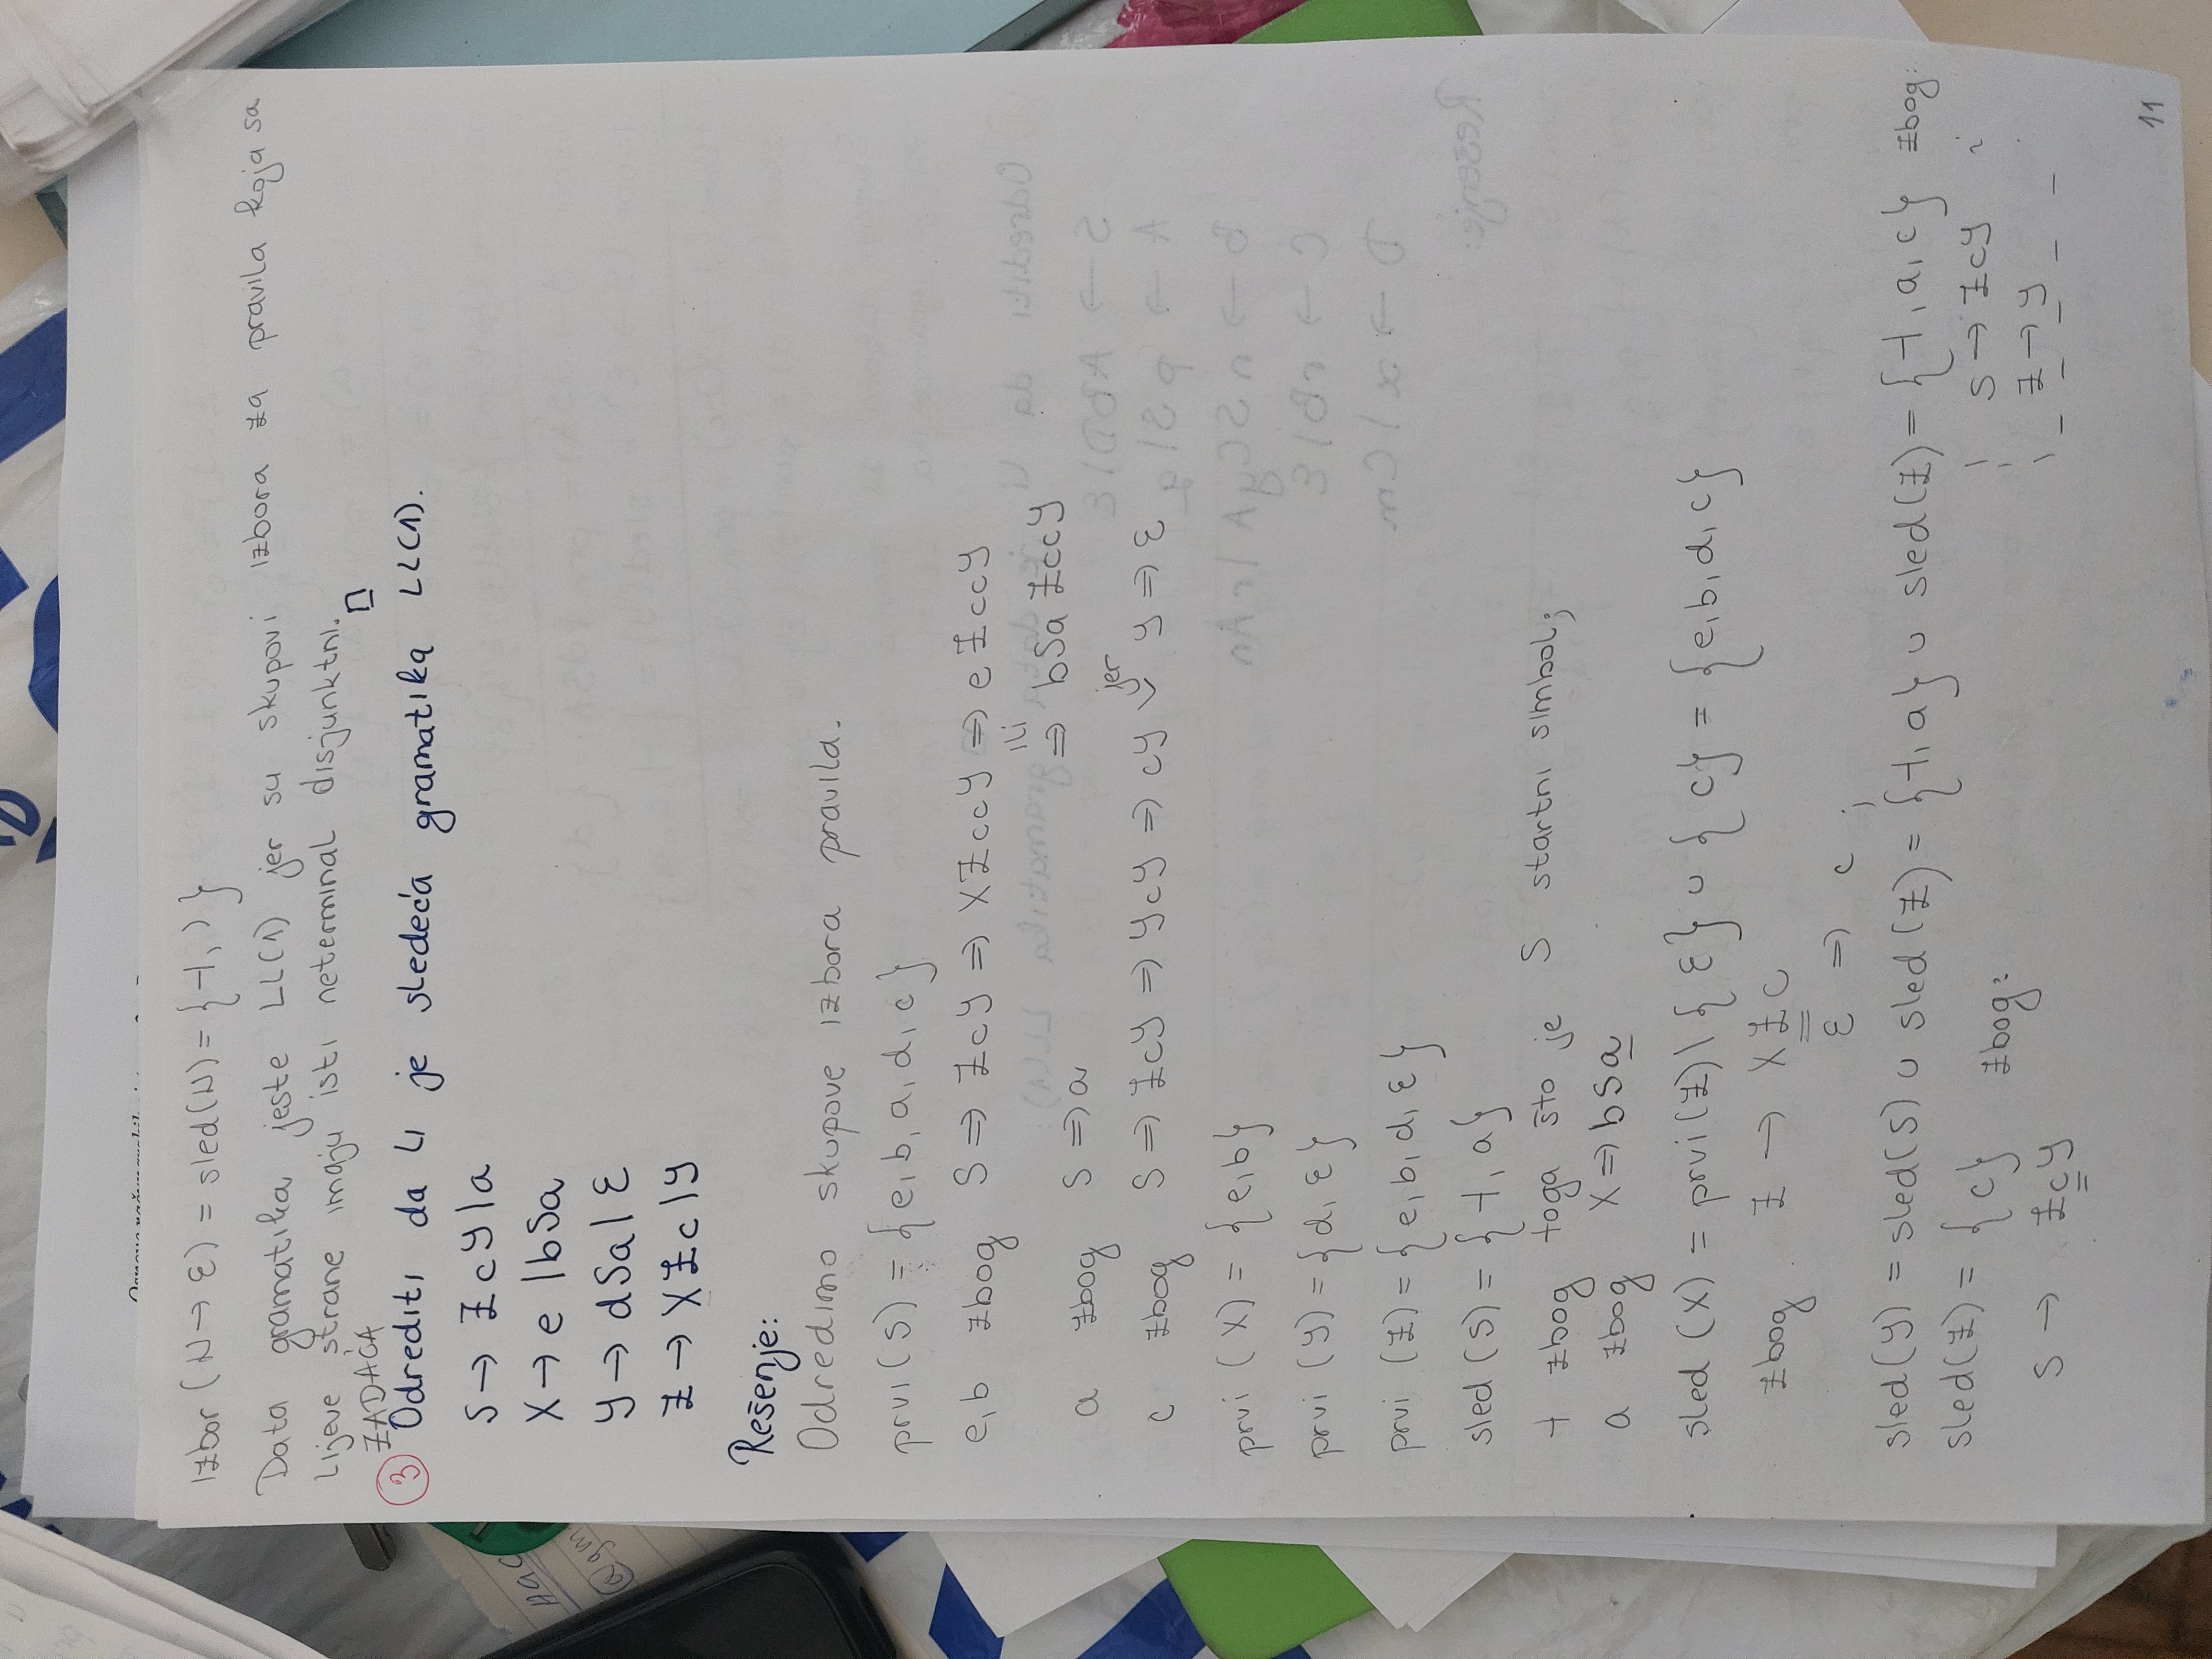 Izbor (N → ε) = sled(N) = {⊣, ) }
Data gramatika jeste LL(1) jer su skupovi izbora za pravila koja sa
lijeve strane imaju isti neterminal disjunktni. □
ZADAĆA
③ Odrediti da li je sledeća gramatika LL(1).
S → ZcY|a
X → e |bSa
Y → dSa| ε
Z → XZc|Y
Rešenje:
Odredimo skupove izbora pravila.
prvi(S) = {e, b, a, d, c}
e, b zbog S ⇒ ZcY ⇒ XZccY ⇒ eZccY
ili
⇒ bSaZccY
a zbog S ⇒ a
c zbog S ⇒ ZcY ⇒ YcY ⇒ cY jer Y ⇒ ε
prvi (X) = {e, b}
prvi (Y) = {d, ε}
prvi (Z) = {e, b, d, ε}
sled (S) = {⊣, a}
⊣ zbog toga što je S startni simbol;
a zbog X ⇒ bSa
sled (X) = prvi(Z)\{ε} ∪ {c} = {e, b, d, c}
zbog Z → XZc
ε ⇒ c ;
sled(Y) = sled(S) ∪ sled(Z) = {⊣, a} ∪ sled(Z) = {⊣, a, c} zbog:
S → ZcY i
Z → Y
sled(Z) = {c} zbog:
S → ZcY
11